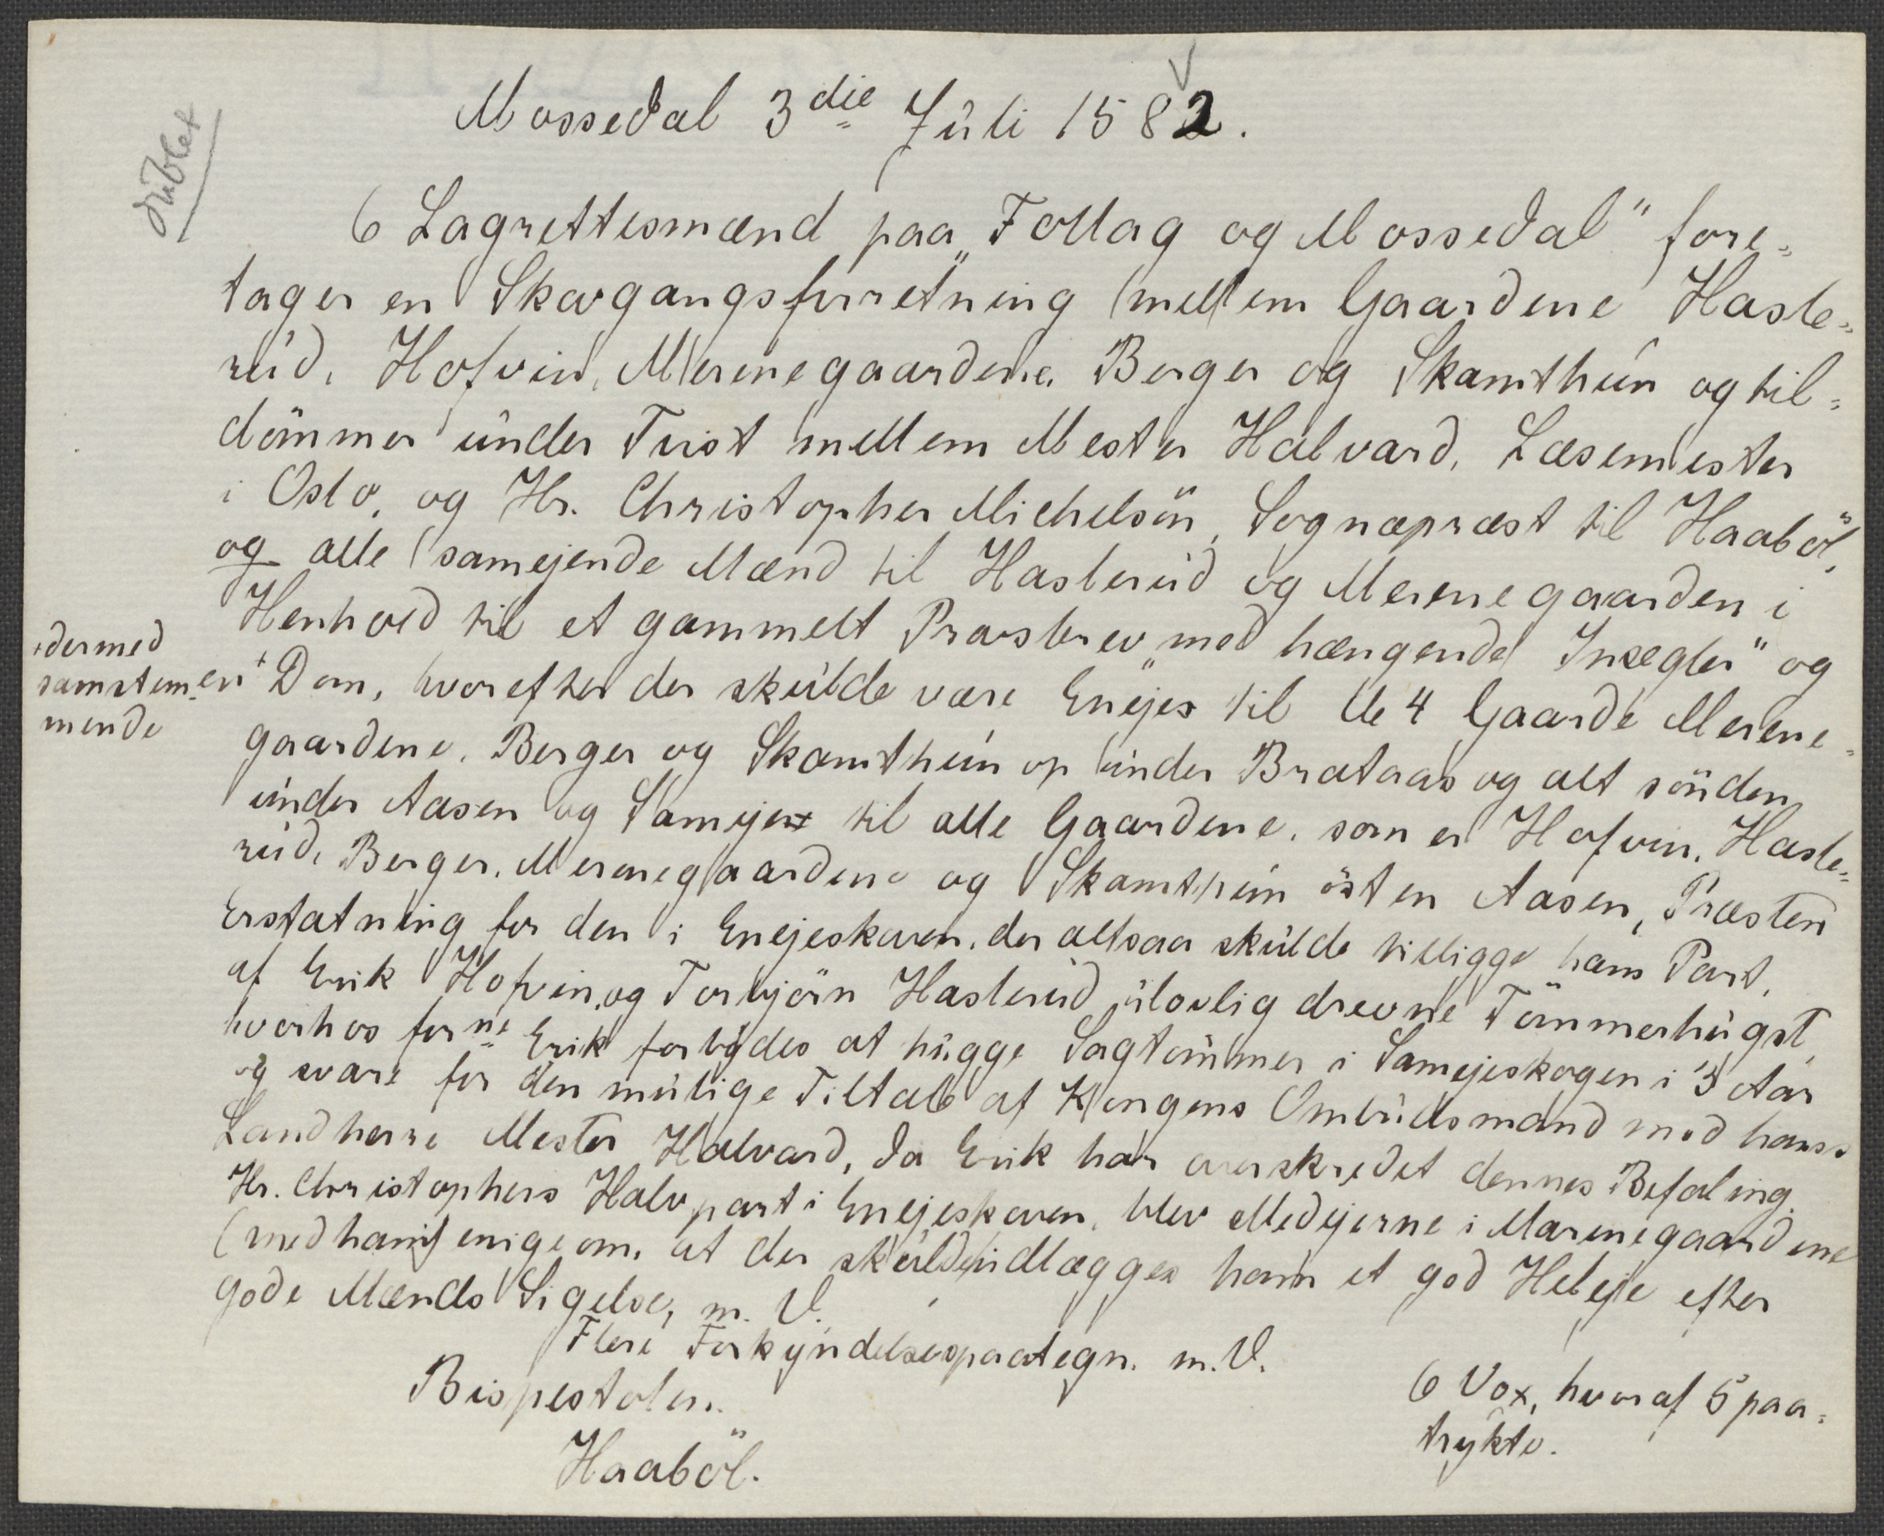 dublet
Mossedal 3die Juli 1582.
6 Lagrettesmænd paa „Follag og Mossedal" fore-
tager en Skovgangsforretning mellem Gaardene Hasle-
rud, Hofvin, Merenegaardene, Berger og Skamthun og til-
dömmer under Tvist mellem Mester Halvard, Læsemester
i Oslo, og Hr. Christopher Michelsön, Sognepræst til Haaböl,
og alle samejende Mænd til Haslerud og Merenegaarden i
Henhold til et gammelt Provsbrev „med hængende Insegler" og
en + Dom, hvorefter der skulde være Eneje til de 4 Gaarde Merene-
+dermed
samstem-
mende
gaardene, Berger og Skamthun op under Brataas og alt sönden
under Aasen og Sameje til alle Gaardene, som er Hofvin, Hasle-
rud, Berger, Merenegaardene og Skamthun östen Aasen, Præsten
Erstatning for den i Enejeskoven, der altsaa skulde tilligge hans Part,
af Erik Hofvin og Torbjörn Haslerud ulovlig drevne Tömmerhugst,
hvorhos forne Erik forbydes at hugge Sagtömmer i Samejeskogen i 3 Aar
og svare for den mulige Tiltale af Kongens Ombudsmand mod hans
Landherre Mester Halvard, da Erik har overskredet dennes Befaling.
Hr. Christophers Halvpart i Enejeskoven, blev Medejerne i Marenegaardene
(med ham) enige om, at der skulde udlægges ham et god Heleje efter
gode Mænds Sigelse, m. V.
Flere Forkyndelsespaategn. m. V.
Bispestolen.
Haaböl.
6 Vox, hvoraf 5 paa-
trykte.